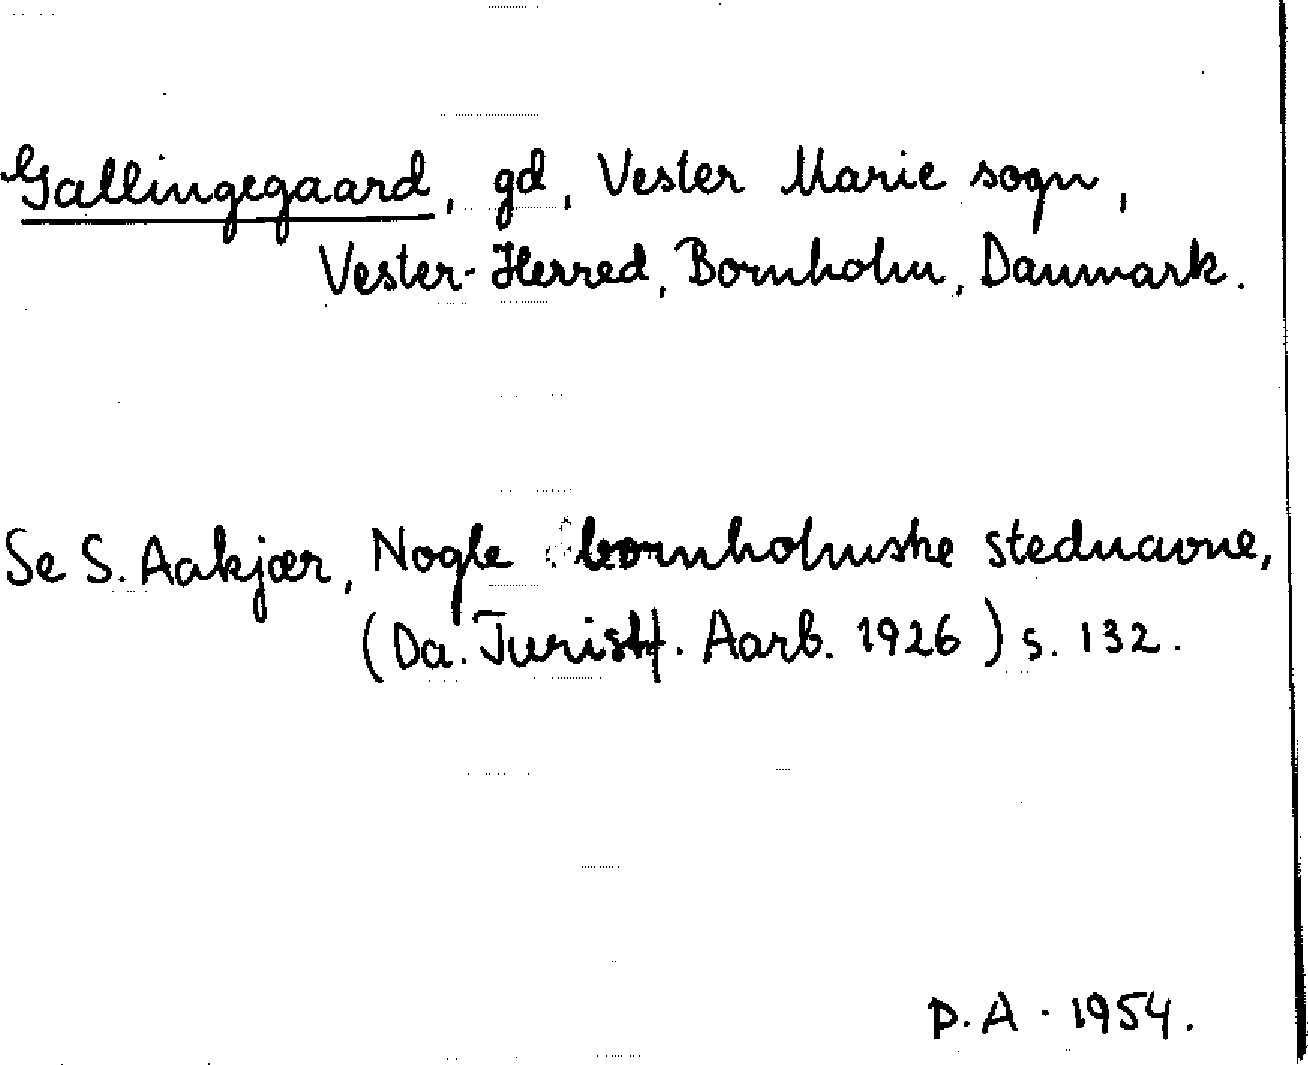 Gallingegaard, gd, Vester Marie sogn,
Vester-Herred, Bornholm, Danmark.
Se S. Aakjær, Nogle bornholmske stednavne,
(Da. Turistf. Aarb. 1926) s. 132.
P.A. 1954.